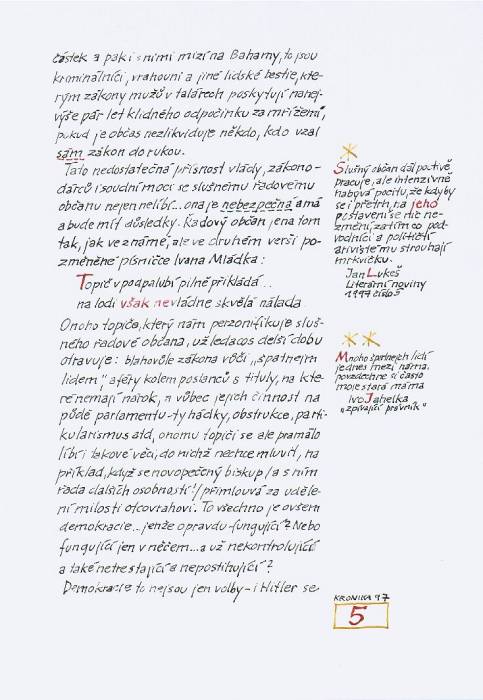 částek a pak i s nimi mizí na Bahamy, to jsou
kriminálníci, vrahouni a jiné lidské bestie, kte-
rým zákony mužů v talárech poskytují nanej-
výše pár let klidného odpočinku za mřížemi,
pokud je občas nezlikviduje někdo, kdo vzal
sám zákon do rukou.
Tato nedostatečná přísnost vlády, zákono-
dárců i soudní moci se slušnému řadovému
občanu nejen nelíbí... ona je nebezpečná a má
a bude mít důsledky. Řadový občan je na tom
tak, jak ve známé, ale ve druhém verši po-
změněné písničce Ivana Mládka:
Topič v podpalubí pilně přikládá...
na lodi však nevládne skvělá nálada
Onoho topiče, který nám personifikuje sluš-
ného řadové občana, už ledacos delší dobu
otravuje: blahovůle zákona vůči „špatnejm
lidem“, aféry kolem poslanců s tituly, na kte-
ré nemají nárok, a vůbec jejich činnost na
půdě parlamentu - ty hádky, obstrukce, parti-
kularismus atd, onomu topiči se ale pramálo
líbí i takové věci, do nichž nechce mluvit, na
příklad, když se novopečený biskup /a s ním
řada dalších osobností!/ přimlouvá za uděle-
ní milosti otcovrahovi. To všechno je ovšem
demokracie... jenže opravdu-fungující? Nebo
fungující jen v něčem... a už nekontrolující
a také netrestající a nepostihující?
Demokracie to nejsou jen volby - i Hitler se
Slušný občan dál poctivě
pracuje, ale intenzivně
nabývá pocitu, že kdyby
se i přetrh, na jeho
postavení se nic ne-
změní, zatím co pod-
vodníci a političtí
arivisté mu strouhají
mrkvičku.
Jan Lukeš
Literární noviny
1997 číslo 5
Mnoho špatnejch lidí
jednes mezi náma,
povzdechne si často
moje stará máma
Ivo Jahelka
„zpívající právník“
KRONIKA 97
5